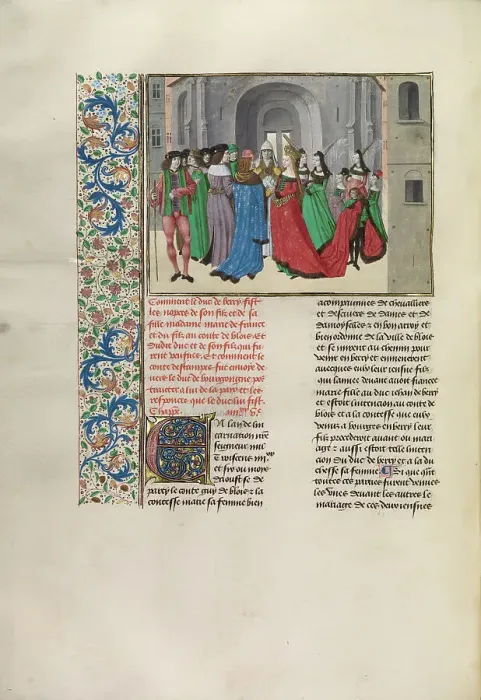 Comment le duc de berry fist
les nopces de son filz et de sa
fille madame marie de france
et du filz au conte de blois. Et
dudit duc et de son filz qui fu
rent Et comment le
conte deftrampes fut envoye de
vers le duc de bourgoingne po
de la paix et les
responces que le duc lui fist.
Chappe.
En lan de lin
carnation nre
seigneur mil
.CCC. iiijxx
et six ou mois
daoust se
party le conte guy de blois & la
contesse marie sa femme bien
acompaignies de chevalliers
et descuiers de dames et de
damoyselles & en bon arroy et
bien ordonne de la ville de blois
et se mirent au chemin pour
venir en berry et emmenerent
avecques eulx leur ensne filz
qui lannee devant avoit fiancee
marie fille au duc jehan de berry
et estoit lintencion au conte de
blois et a la contesse que eulx
venus a bourges en berry leur
filz procederoit avant ou mari
age & aussi estoit telle linten
cion du duc de berry et a la du
chesse sa femme Si que quant
toutes ces parties furent venues
les unes devant les autres le
mariage de ces deux